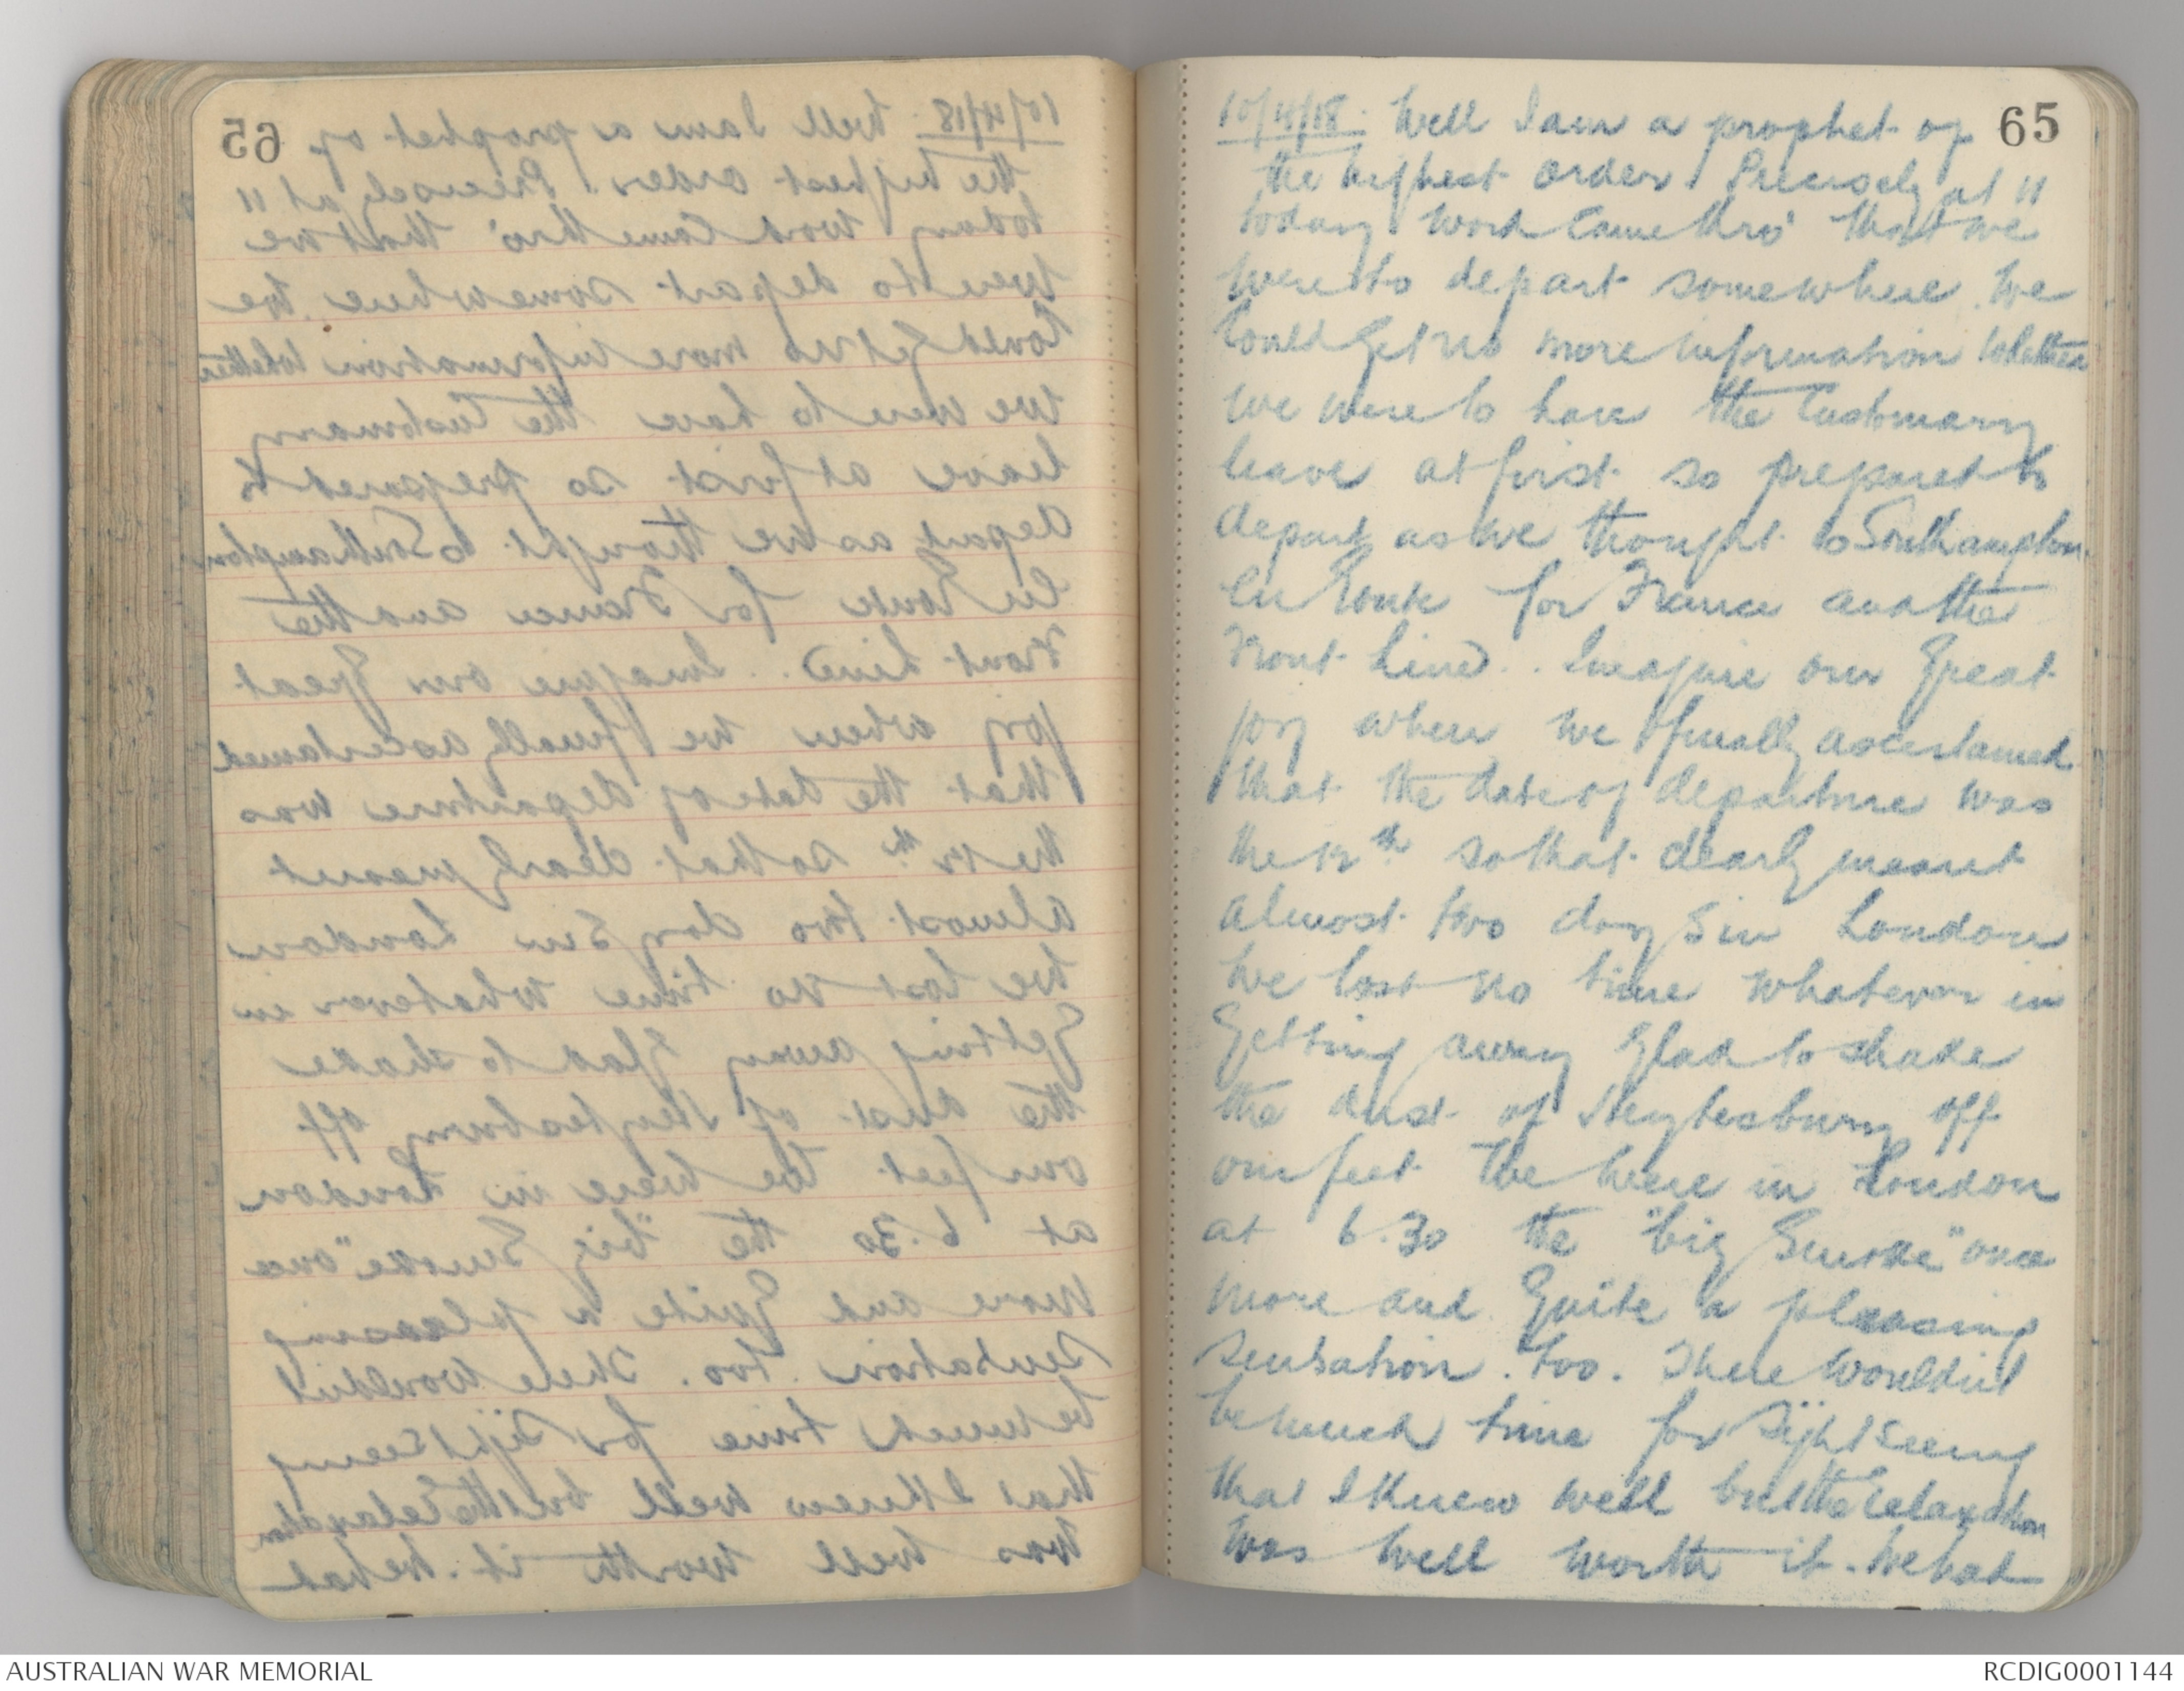 65
10/4/18. Well I am a prophet of
the highest order. Precisely at 11
today word came thro' that we
were to depart somewhere. We
could get no more information whether
we were to have the customary
leave at first so prepared to
depart as we thought to Southampton
en route for France and the
Front Line. Imagine our great
joy when we finally ascertained
that the date of departure was
the 12th so that clearly meant
almost two days in London
We lost no time whatever in
getting away glad to shake
the dust of Heytesbury off
our feet We were in London
at 6.30 the "big Smoke" once
more and quite a pleasing
sensation. too. There wouldn't
be much time for sight seeing
that I knew well but the relaxation
was well worth it. We had
AUSTRALIAN WAR MEMORIAL
RCDIG0001144